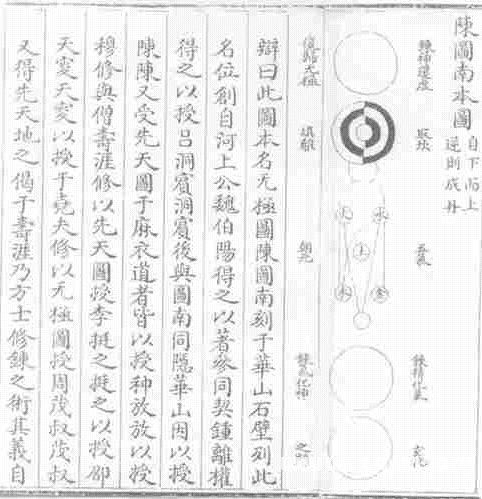 陳圖南本圖
自下而上
逆則成丹
鍊神還虛
復歸无極
取坎
填離
五氣
朝元
水
火
土
金
木
鍊精化氣
鍊氣化神
玄牝
之門
辯曰此圖本名无極圖陳圖南刻于華山石壁列此
名位創自河上公魏伯陽得之以著參同契鍾離權
得之以授呂洞賓洞賓後與圖南同隱華山因以授
陳陳又受先天圖于麻衣道者皆以授种放放以授
穆修與僧壽涯修以先天圖授李挺之挺之以授邵
天叟天叟以授子堯夫修以无極圖授周茂叔茂叔
又得先天地之偈于壽涯乃方士修鍊之術其義自